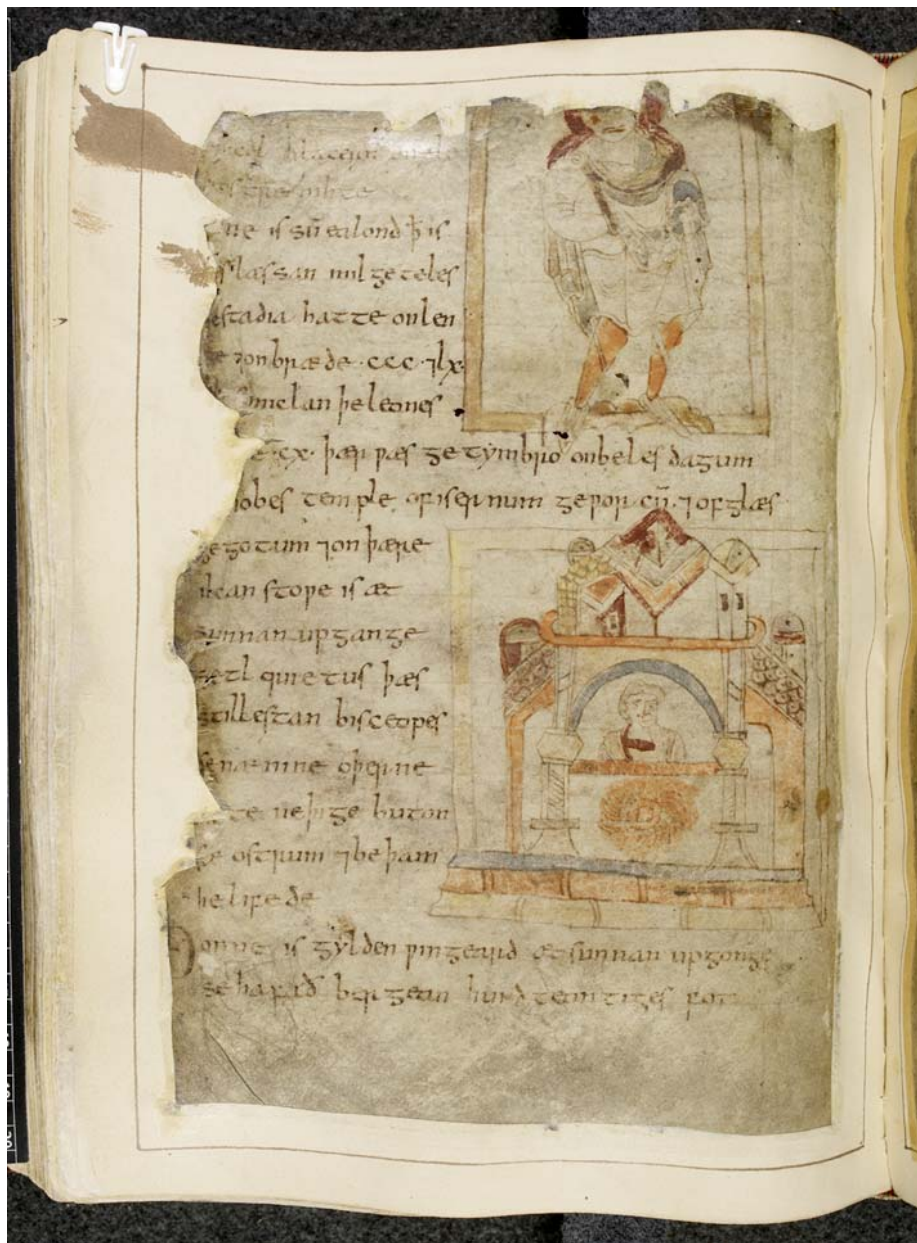 is sū ealond þis
læssan mil geteles
stadia hatte on len
⁊ on bræde · ccc · ⁊ lx ·
milan þe leones
· cx · þær ƿæs getymbrio on beles dagum
iobes temple of isernum geƿorcū · ⁊ of glæs
gegotum ⁊ on þære
ilcan stoƿe is æt
sunnan upgange
setl quietus þæs
stillestan bisceopes
se nænine oþerne
ne þige buton
sæ ostrum ⁊ be þam
he lifede
Ðonne is gylden ƿingeard æt sunnan upgonge
se hafað bergean hundteontiges fot